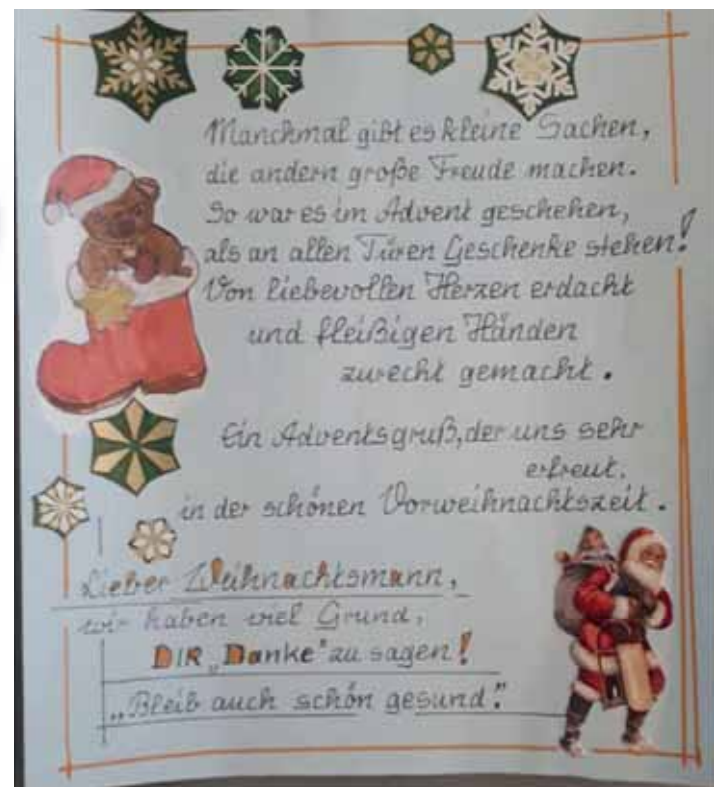 Manchmal gibt es kleine Sachen,
die andern große Freude machen.
So war es im Advent geschehen,
als an allen Türen Geschenke stehen!
Von liebevollen Herzen erdacht
und fleißigen Händen
zurecht gemacht.
Ein Adventsgruß, der uns sehr
erfreut.
in der schönen Vorweihnachtszeit.
Lieber Weihnachtsmann,
wir haben viel Grund,
DIR „Danke" zu sagen!
„Bleib auch schön gesund."